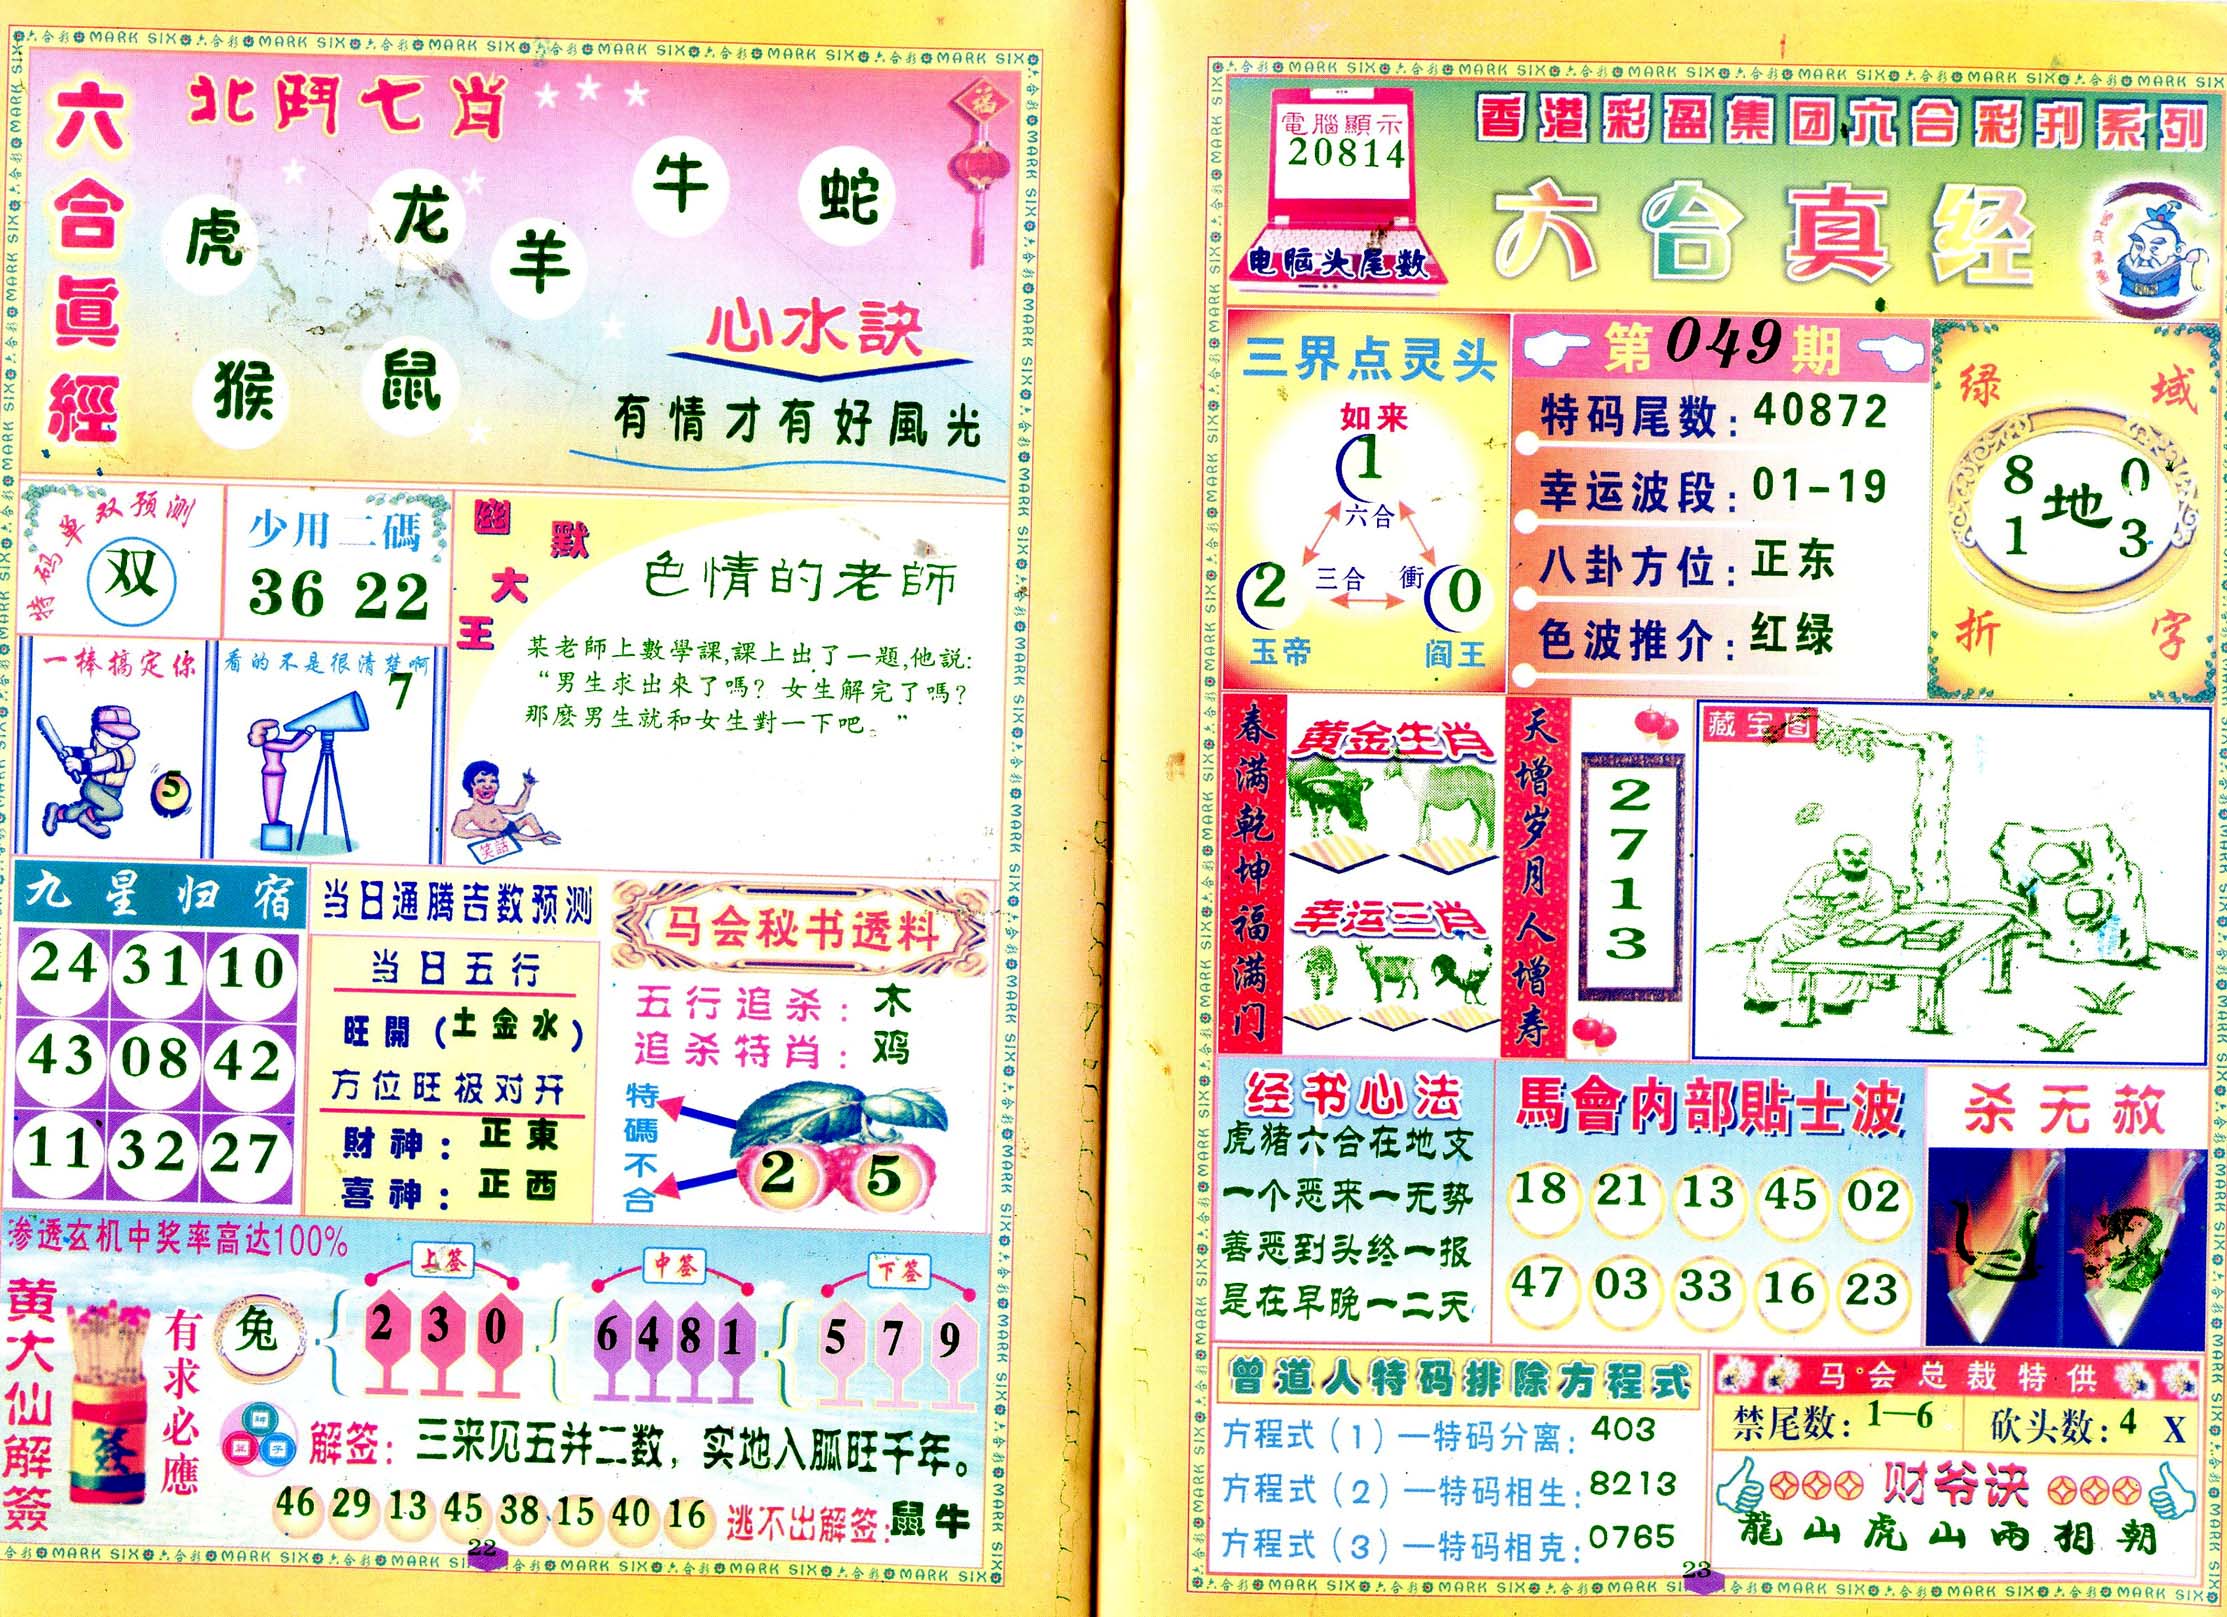 六合眞經
北鬥七肖
福
虎
龙
羊
牛
蛇
猴
鼠
心水訣
有情才有好風光
特码单双预测
双
少用二碼
36 22
一棒搞定你
5
看的不是很清楚啊
7
幽默大王
色情的老師
某老師上數學課,課上出了一題,他説:
“男生求出來了嗎？女生解完了嗎？
那麽男生就和女生對一下吧。”
笑話
九星归宿
24 31 10
43 08 42
11 32 27
当日通腾吉数预测
当日五行
旺開（土金水）
方位旺极对开
財神：正東
喜神：正西
马会秘书透料
五行追杀：木
追杀特肖：鸡
特碼不合
2 5
渗透玄机中奖率高达100%
黄大仙解簽
签
有求必應
兔
上签
2 3 0
中签
6 4 8 1
下签
5 7 9
解签：三来见五并二数，实地入胍旺千年。
46 29 13 45 38 15 40 16 逃不出解签:鼠牛
22
電腦顯示
20814
电脑头尾数
香港彩盈集团六合彩刊系列
六合真经
三界点灵头
如来
1
六合
三合 衝
2
0
玉帝
阎王
第049期
特码尾数：40872
幸运波段：01-19
八卦方位：正东
色波推介：红绿
绿域折字
8 0
地
1 3
春满乾坤福满门
黄金生肖
幸运三肖
天增岁月人增寿
2713
藏宝图
经书心法
虎猪六合在地支
一个恶来一无势
善恶到头终一报
是在早晚一二天
馬會内部貼士波
18 21 13 45 02
47 03 33 16 23
杀无赦
曾道人特码排除方程式
方程式（1）—特码分离：403
方程式（2）—特码相生：8213
方程式（3）—特码相克：0765
马会总裁特供
禁尾数：1—6
砍头数：4 X
财爷诀
龍山虎山两相朝
23
六合彩 MARK SIX